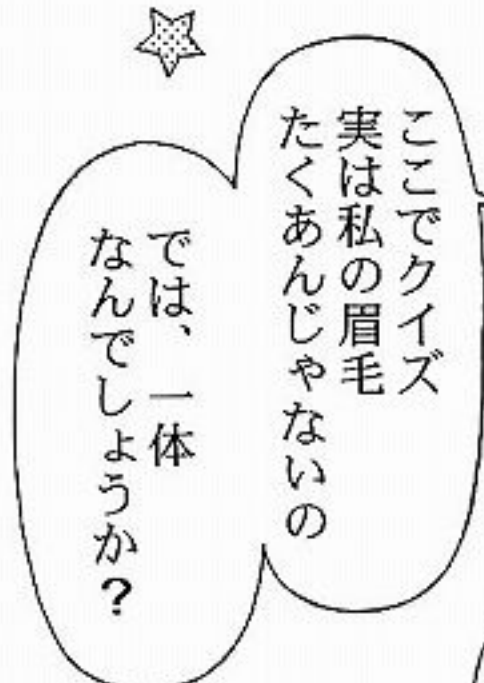 ここでクイズ
実は私の眉毛
たくあんじゃないの
では、一体
なんでしょうか？